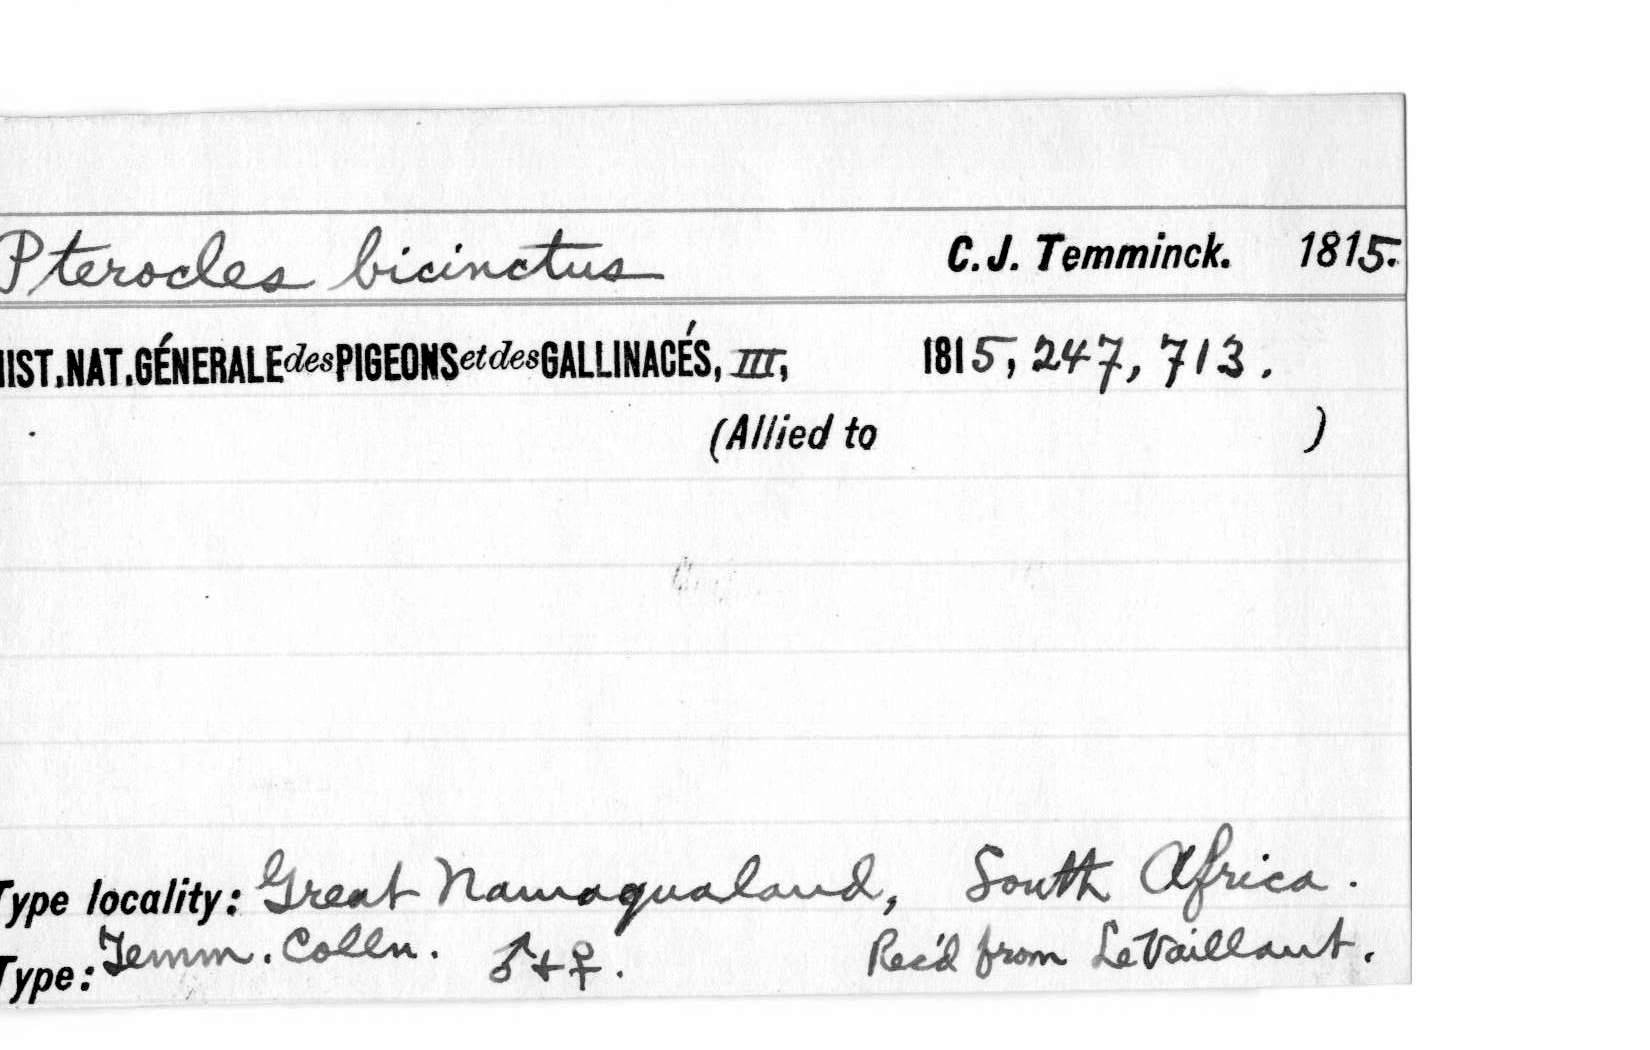 Pterocles bicinctus C. J. Temminck. 1815.
HIST. NAT. GÉNERALE des PIGEONS et des GALLINACÉS, III, 1815, 247, 713.
(Allied to )
Type locality: Great Namaqualand, South Africa.
Type: Temm. Colln. ♂+♀. Rec'd from LeVaillant.